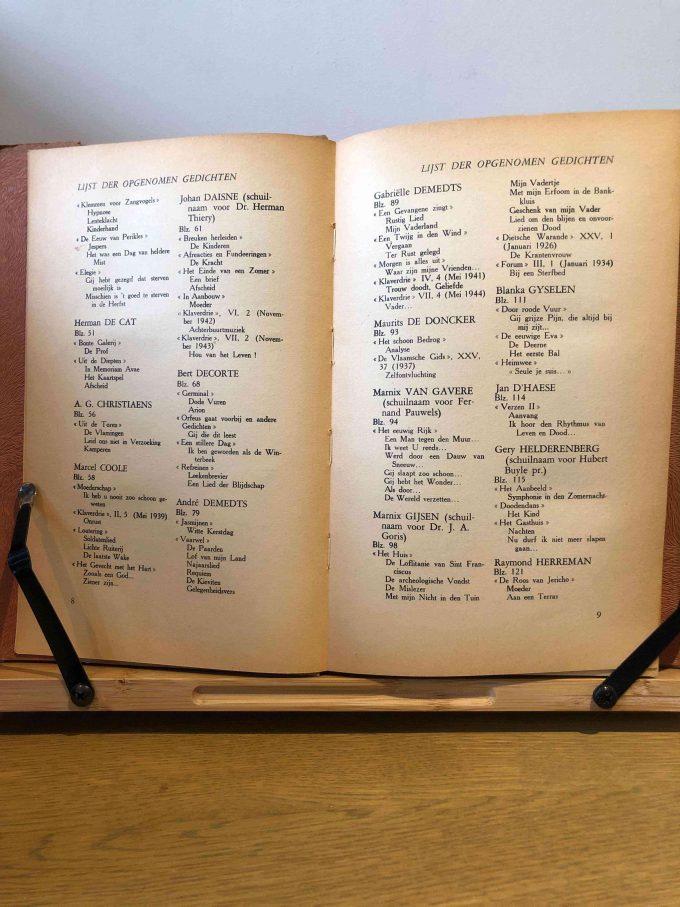 LIJST DER OPGENOMEN GEDICHTEN
« Klemmen voor Zangvogels »
Hypnose
Lenteklacht
Kinderhand
« De Eeuw van Perikles »
Jespers
Het was een Dag van heldere
Mist
« Elegie »
Gij hebt gezegd dat sterven
moeilijk is
Misschien is 't goed te sterven
in de Herfst
Herman DE CAT
Blz. 51
« Bonte Galerij »
De Prof
« Uit de Diepten »
In Memoriam Avae
Het Kaartspel
Afscheid
A. G. CHRISTIAENS
Blz. 56
« Uit de Toren »
De Vlamingen
Leid ons niet in Verzoeking
Kamperen
Marcel COOLE
Blz. 58
« Moederschap »
Ik heb u nooit zoo schoon ge-
weten
« Klaverdrie », II, 5 (Mei 1939)
Onrust
« Loutering »
Soldatenlied
Lichte Ruiterij
De laatste Wake
« Het Gevecht met het Hart »
Zooals een God...
Ziener zijn...
8
Johan DAISNE (schuil-
naam voor Dr. Herman
Thiery)
Blz. 61
« Breuken herleiden »
De Kinderen
« Afreacties en Fundeeringen »
De Kracht
« Het Einde van een Zomer »
Een brief
Afscheid
« In Aanbouw »
Moeder
« Klaverdrie », VI, 2 (Novem-
ber 1942)
Achterbuurtmuziek
« Klaverdrie », VII, 2 (Novem-
ber 1943)
Hou van het Leven !
Bert DECORTE
Blz. 68
« Germinal »
Dode Vuren
Arion
« Orfeus gaat voorbij en andere
Gedichten »
Gij die dit leest
« Een stillere Dag »
Ik ben geworden als de Win-
terbeek
« Refreinen »
Loekenbrevier
Een Lied der Blijdschap
André DEMEDTS
Blz. 79
« Jasmijnen »
Witte Kerstdag
« Vaarwel »
De Paarden
Lof van mijn Land
Najaarslied
Requiem
De Kieviten
Gelegenheidsvers
LIJST DER OPGENOMEN GEDICHTEN
Gabriëlle DEMEDTS
Blz. 89
« Een Gevangene zingt »
Rustig Lied
Mijn Vaderland
« Een Twijg in den Wind »
Vergaan
Ter Rust gelegd
« Morgen is alles uit »
Waar zijn mijne Vrienden...
« Klaverdrie » IV, 4 (Mei 1941)
Trouw doodt, Geliefde
« Klaverdrie » VII, 4 (Mei 1944)
Vader...
Maurits DE DONCKER
Blz. 93
« Het schoon Bedrog »
Analyse
« De Vlaamsche Gids », XXV,
37 (1937)
Zelfontvluchting
Marnix VAN GAVERE
(schuilnaam voor Fer-
nand Pauwels)
Blz. 94
« Het eeuwig Rijk »
Een Man tegen den Muur...
Ik weet U reeds...
Werd door een Dauw van
Sneeuw...
Gij slaapt zoo schoon...
Gij hebt het Wonder...
Als door...
De Wereld verzetten...
Marnix GIJSEN (schuil-
naam voor Dr. J. A.
Goris)
Blz. 98
« Het Huis »
De Loflitanie van Sint Fran-
ciscus
De archeologische Vondst
De Mislezer
Met mijn Nicht in den Tuin
Mijn Vadertje
Met mijn Erfoom in de Bank-
kluis
Geschenk van mijn Vader
Lied om den blijen en onvoor-
zienen Dood
« Dietsche Warande » XXV, 1
(Januari 1926)
De Krantenvrouw
« Forum » III, 1 (Januari 1934)
Bij een Sterfbed
Blanka GYSELEN
Blz. 111
« Door roode Vuur »
Gij grijze Pijn, die altijd bij
mij zijt...
« De eeuwige Eva »
De Deerne
Het eerste Bal
« Heimwee »
« Seule je suis... »
Jan D'HAESE
Blz. 114
« Verzen II »
Aanvang
Ik hoor den Rhythmus van
Leven en Dood...
Gery HELDERENBERG
(schuilnaam voor Hubert
Buyle pr.)
Blz. 115
« Het Aanbeeld »
Symphonie in den Zomernacht
« Doodendans »
Het Kind
« Het Gasthuis »
Nachten
Nu durf ik niet meer slapen
gaan...
Raymond HERREMAN
Blz. 121
« De Roos van Jericho »
Moeder
Aan een Terras
9